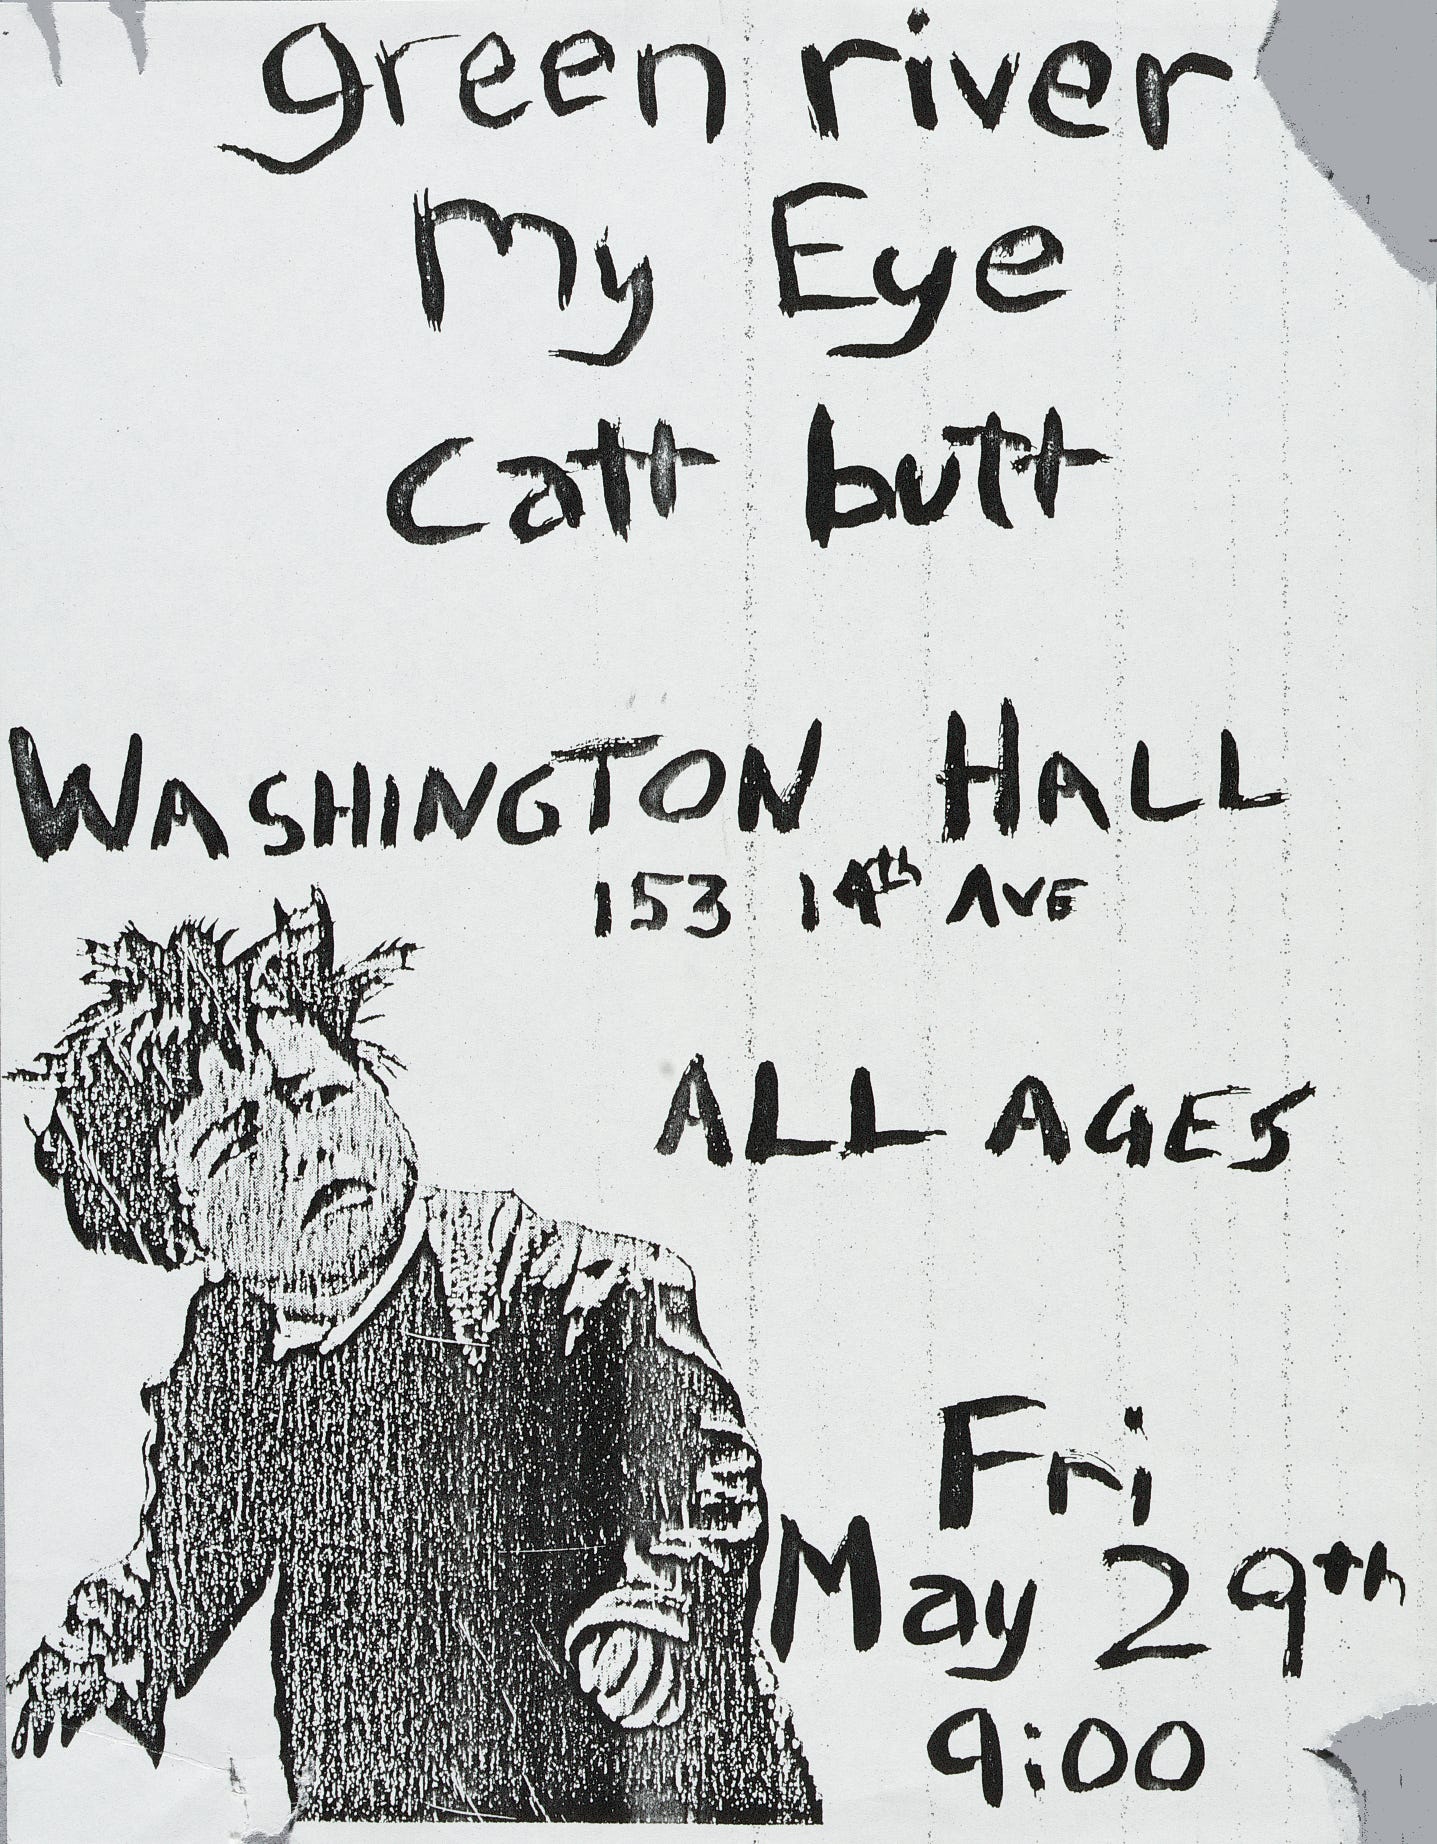 green river
My Eye
Catt butt
WASHINGTON HALL
153 14th AVE
ALL AGES
Fri
May 29th
9:00